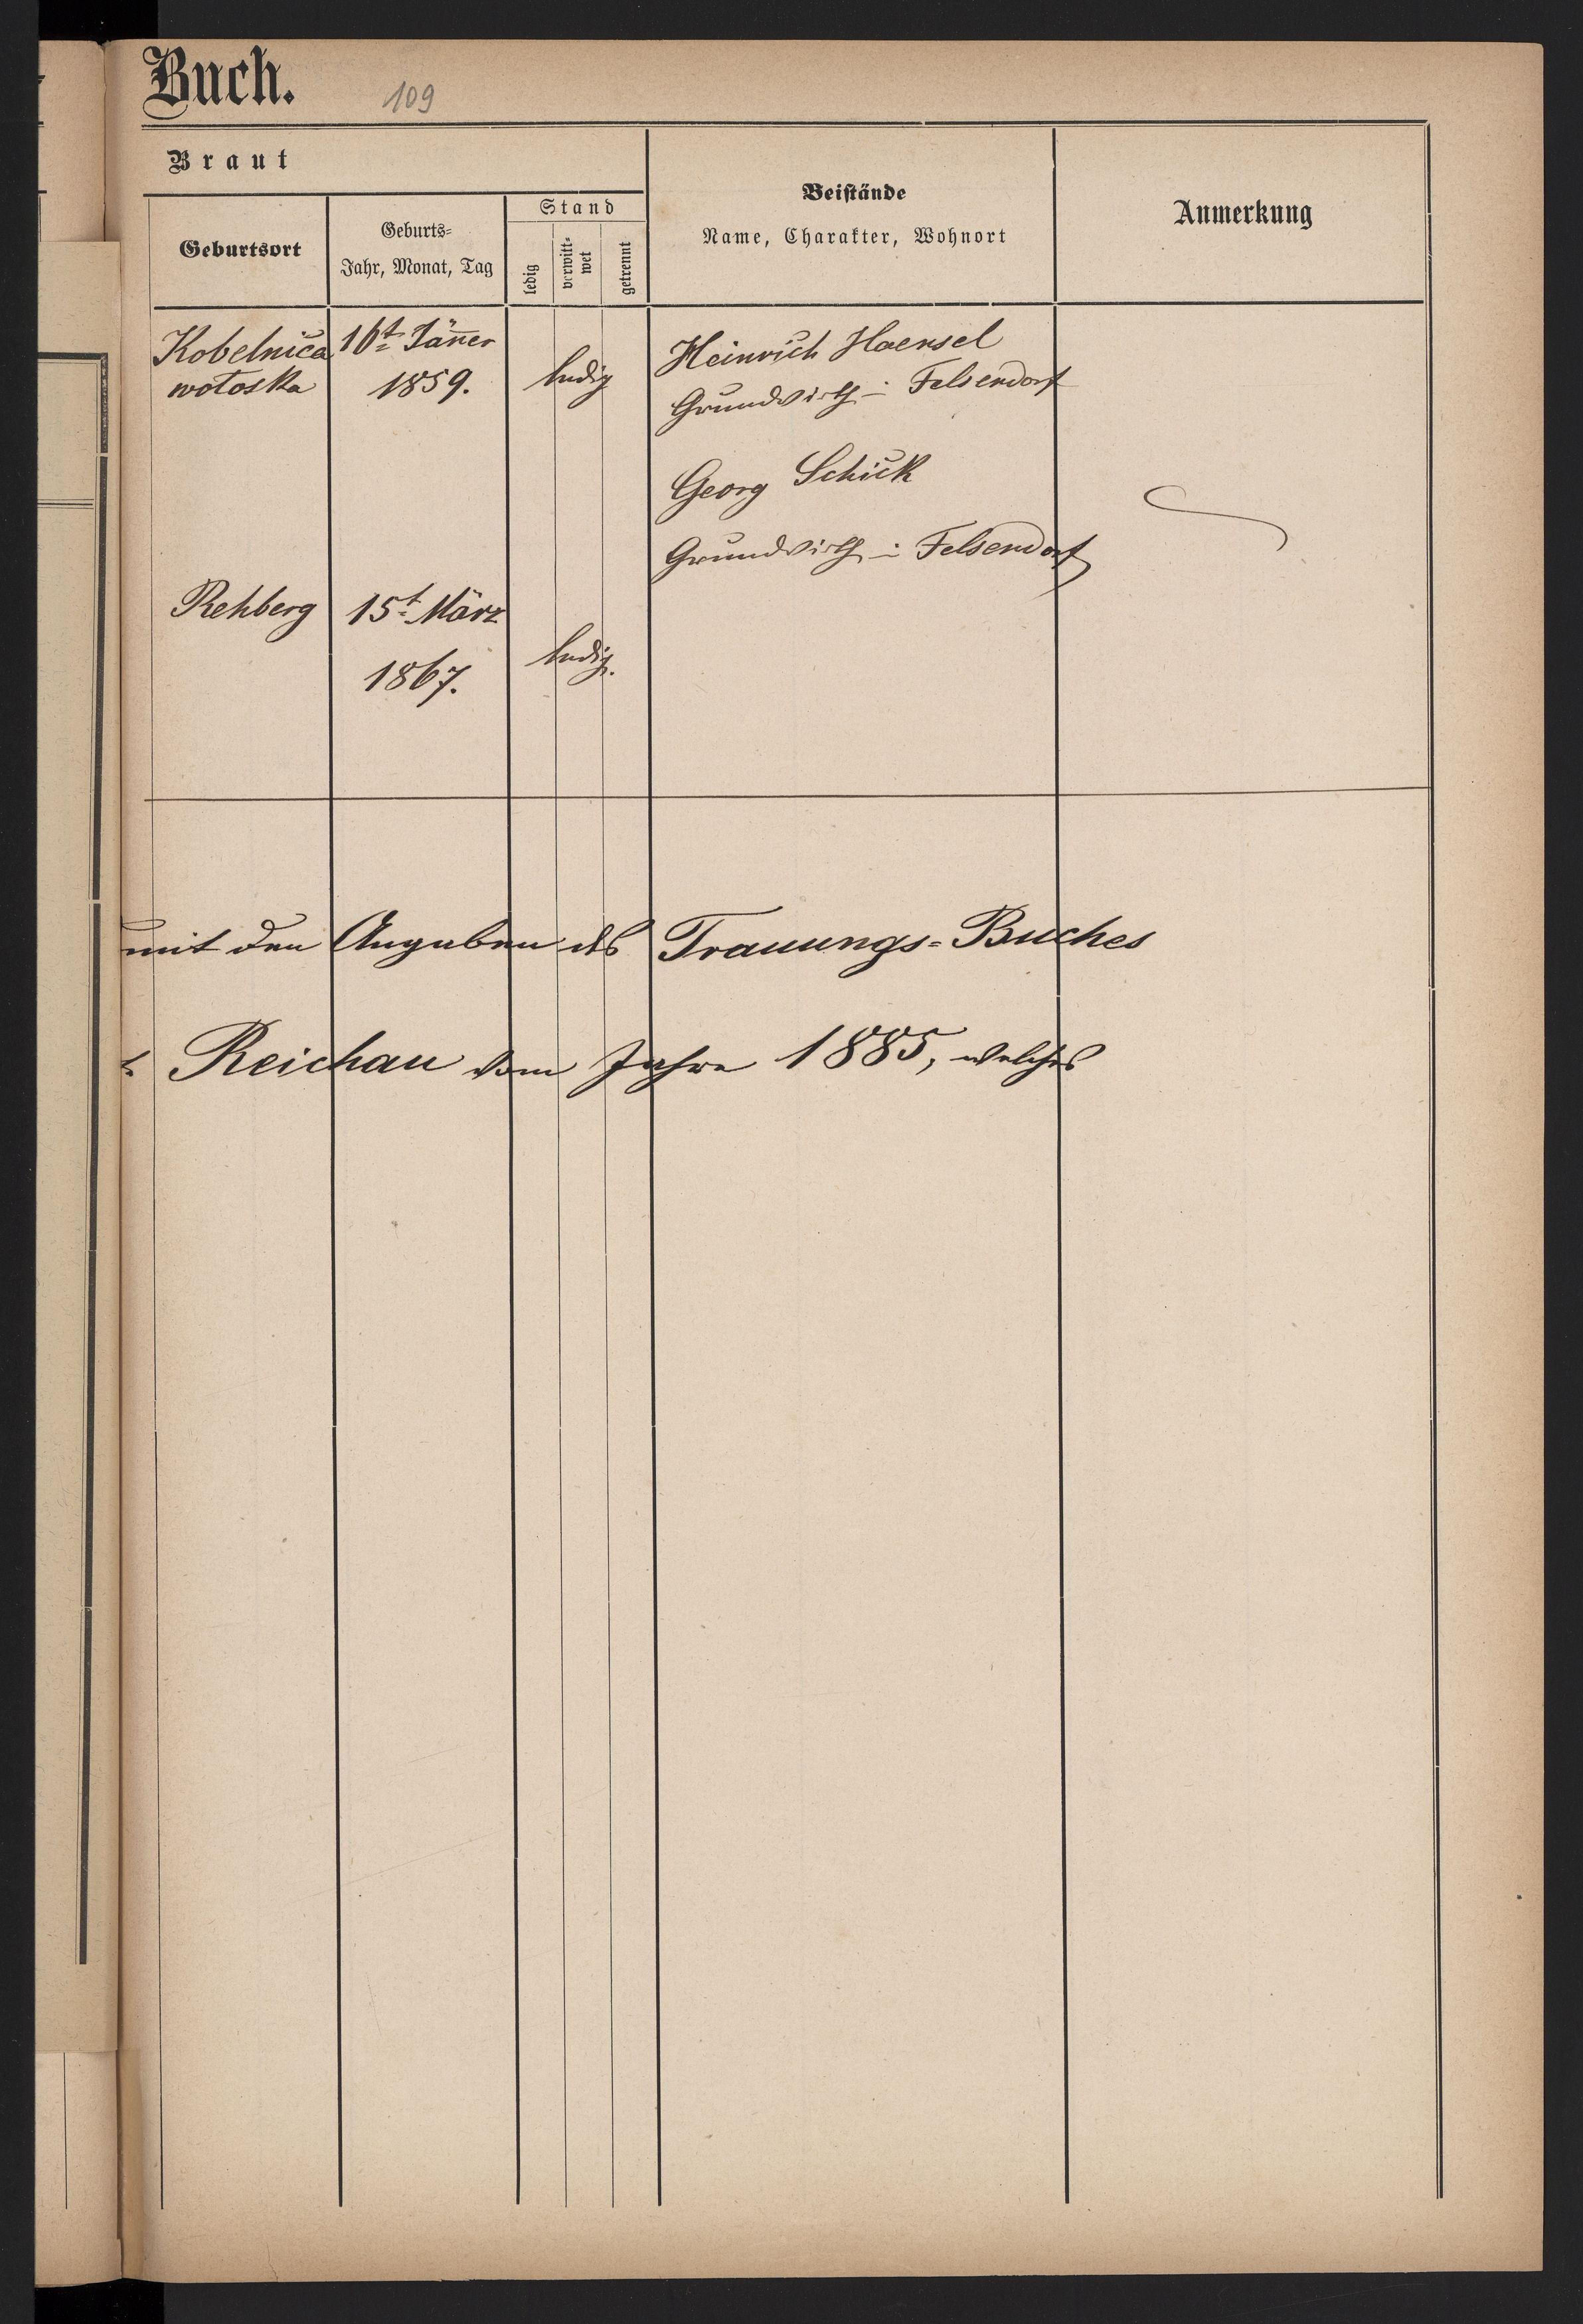 Buch.
109
Braut
Geburtsort
Geburts-
Jahr, Monat, Tag
Stand
ledig
verwitt-
wet
getrennt
Beistände
Name, Charakter, Wohnort
Anmerkung
Kobelnica
wołoska
16t Jänner
1859.
ledig
Heinrich Haensel
Grundwirth i Felsendorf
Georg Schick
Grundwirth i Felsendorf
Rehberg
15t März
1867.
ledig.
mit den Angaben des Trauungs-Buches
Reichau vom Jahre 1885, welches